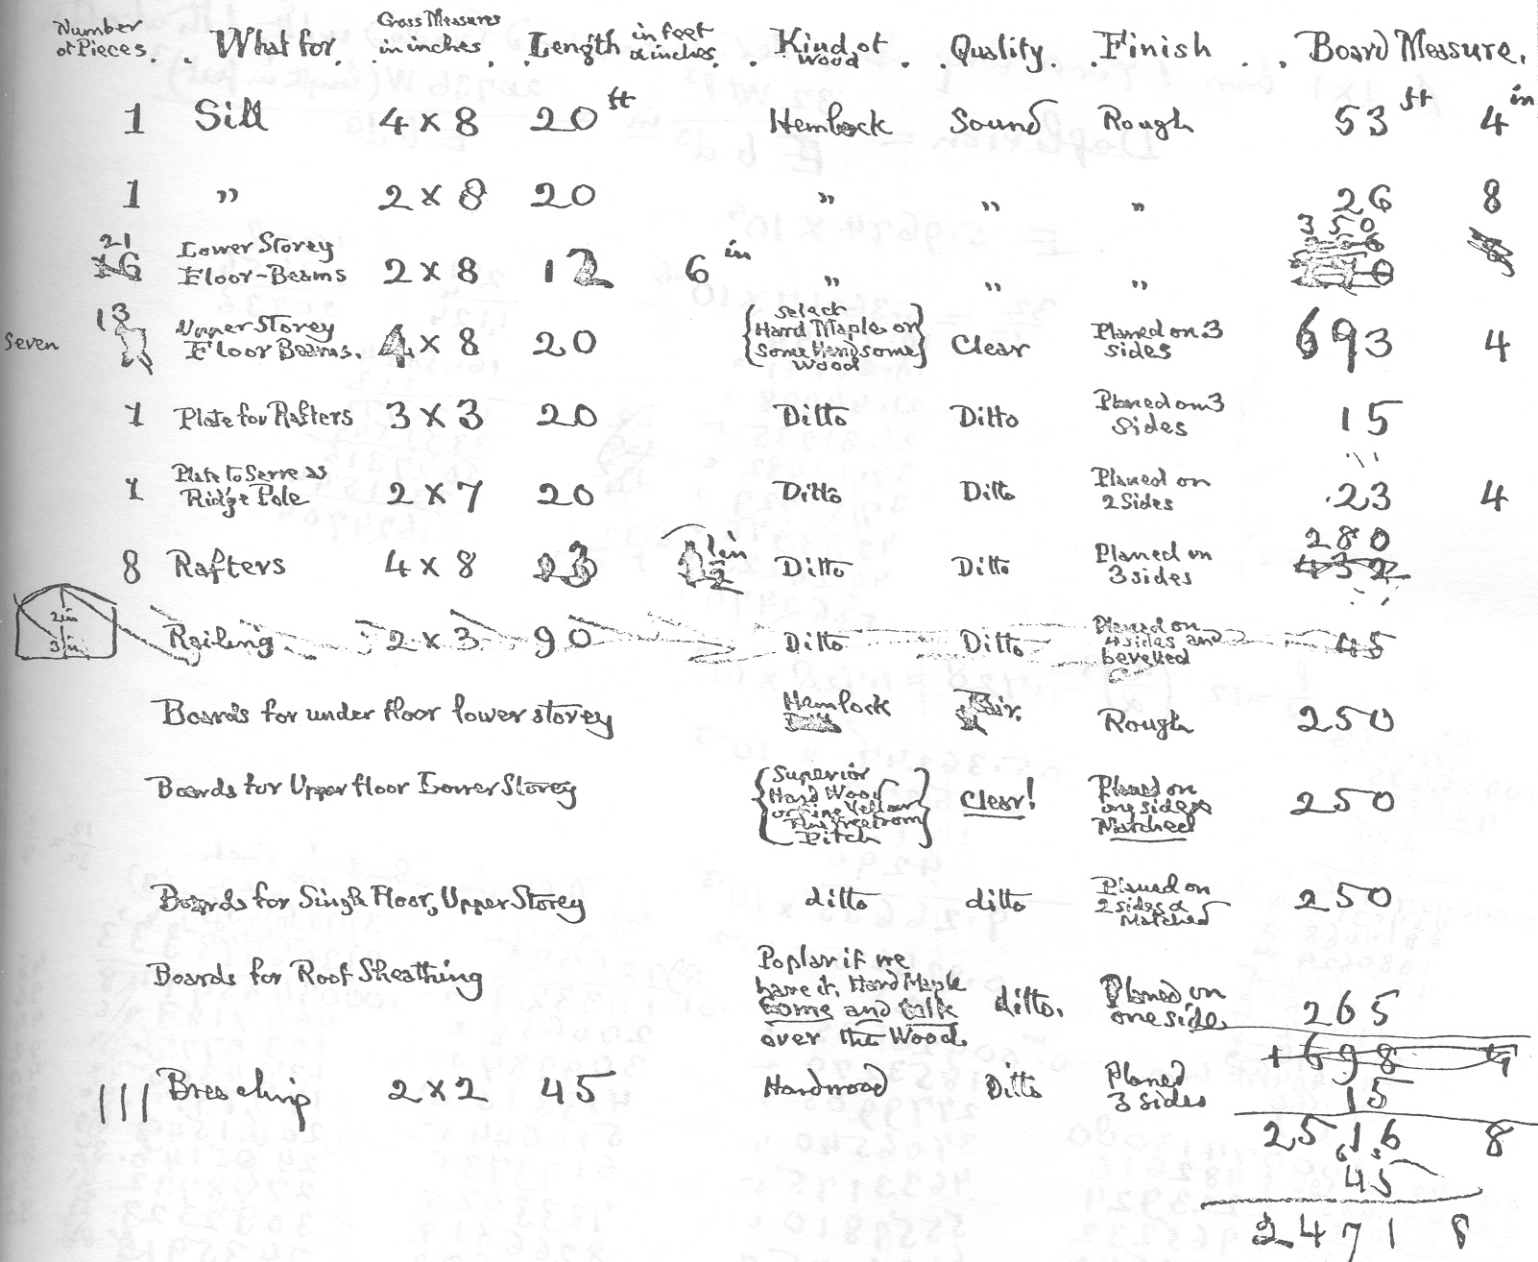 Number of Pieces. What for. Gross Measures in inches. Length in feet & inches. Kind of Wood. Quality. Finish. Board Measure.
1 Sill 4 × 8 20 ft Hemlock Sound Rough 53 ft 4 in
1 ,, 2 × 8 20 ,, ,, ,, 26 8
21 16 Lower Storey Floor-Beams 2 × 8 12 6 in ,, ,, ,, 350
Seven 13 Upper Storey Floor Beams. 4 × 8 20 {Select Hard Maple or Some Handsome Wood} Clear Planed on 3 sides 693 4
1 Plate for Rafters 3 × 3 20 Ditto Ditto Planed on 3 Sides 15
1 Plate to Serve as Ridge Pole 2 × 7 20 Ditto Ditto Planed on 2 Sides 23 4
8 Rafters 4 × 8 13 1 in Ditto Ditto Planed on 3 sides 280 432
2in 3in Railing 2 × 3 90 Ditto Ditto Planed on 4 sides and bevelled 45
Boards for under floor lower storey Hemlock Fair. Rough 250
Boards for Upper floor Lower Storey {Superior Hard Wood or Fine Yellow Pine Free from Pitch} Clear! Planed on one side & Matched 250
Boards for Single Floor, Upper Storey ditto ditto Planed on 2 sides & Matched 250
Boards for Roof Sheathing Poplar if we have it, Hard Maple Come and talk over the Wood. ditto. Planed on one side. 265
+698 4
111 Breeching 2 × 2 45 Hardwood Ditto Planed 3 sides 15
2516 8
45
2471 8